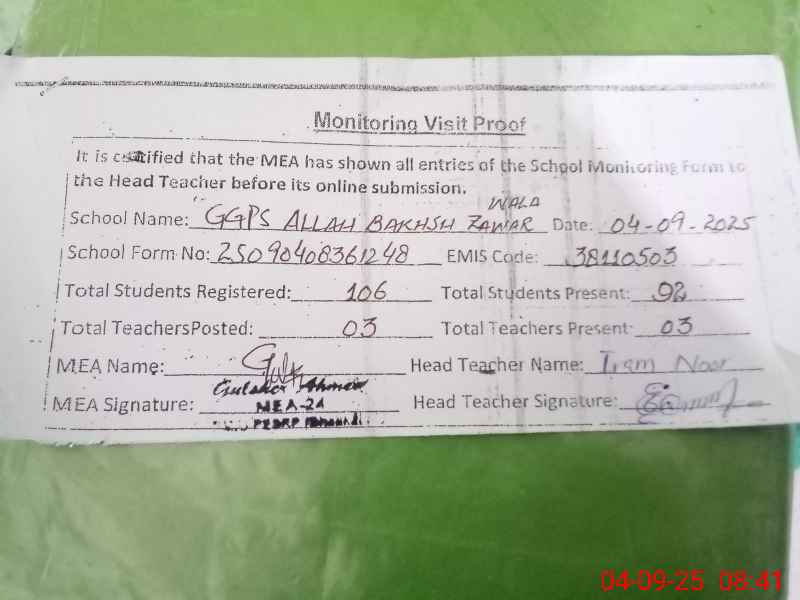 Monitoring Visit Proof
It is certified that the MEA has shown all entries of the School Monitoring Form to
the Head Teacher before its online submission.
School Name: GGPS ALLAH BAKHSH ZAWAR WALA Date: 04-09-2025
School Form No: 25090408361248 EMIS Code: 38110503
Total Students Registered: 106 Total Students Present: 92
Total TeachersPosted: 03 Total Teachers Present: 03
MEA Name: Head Teacher Name: Iram Noor
MEA Signature: Gulsher Ahmed Head Teacher Signature:
MEA-24
04-09-25 08:41